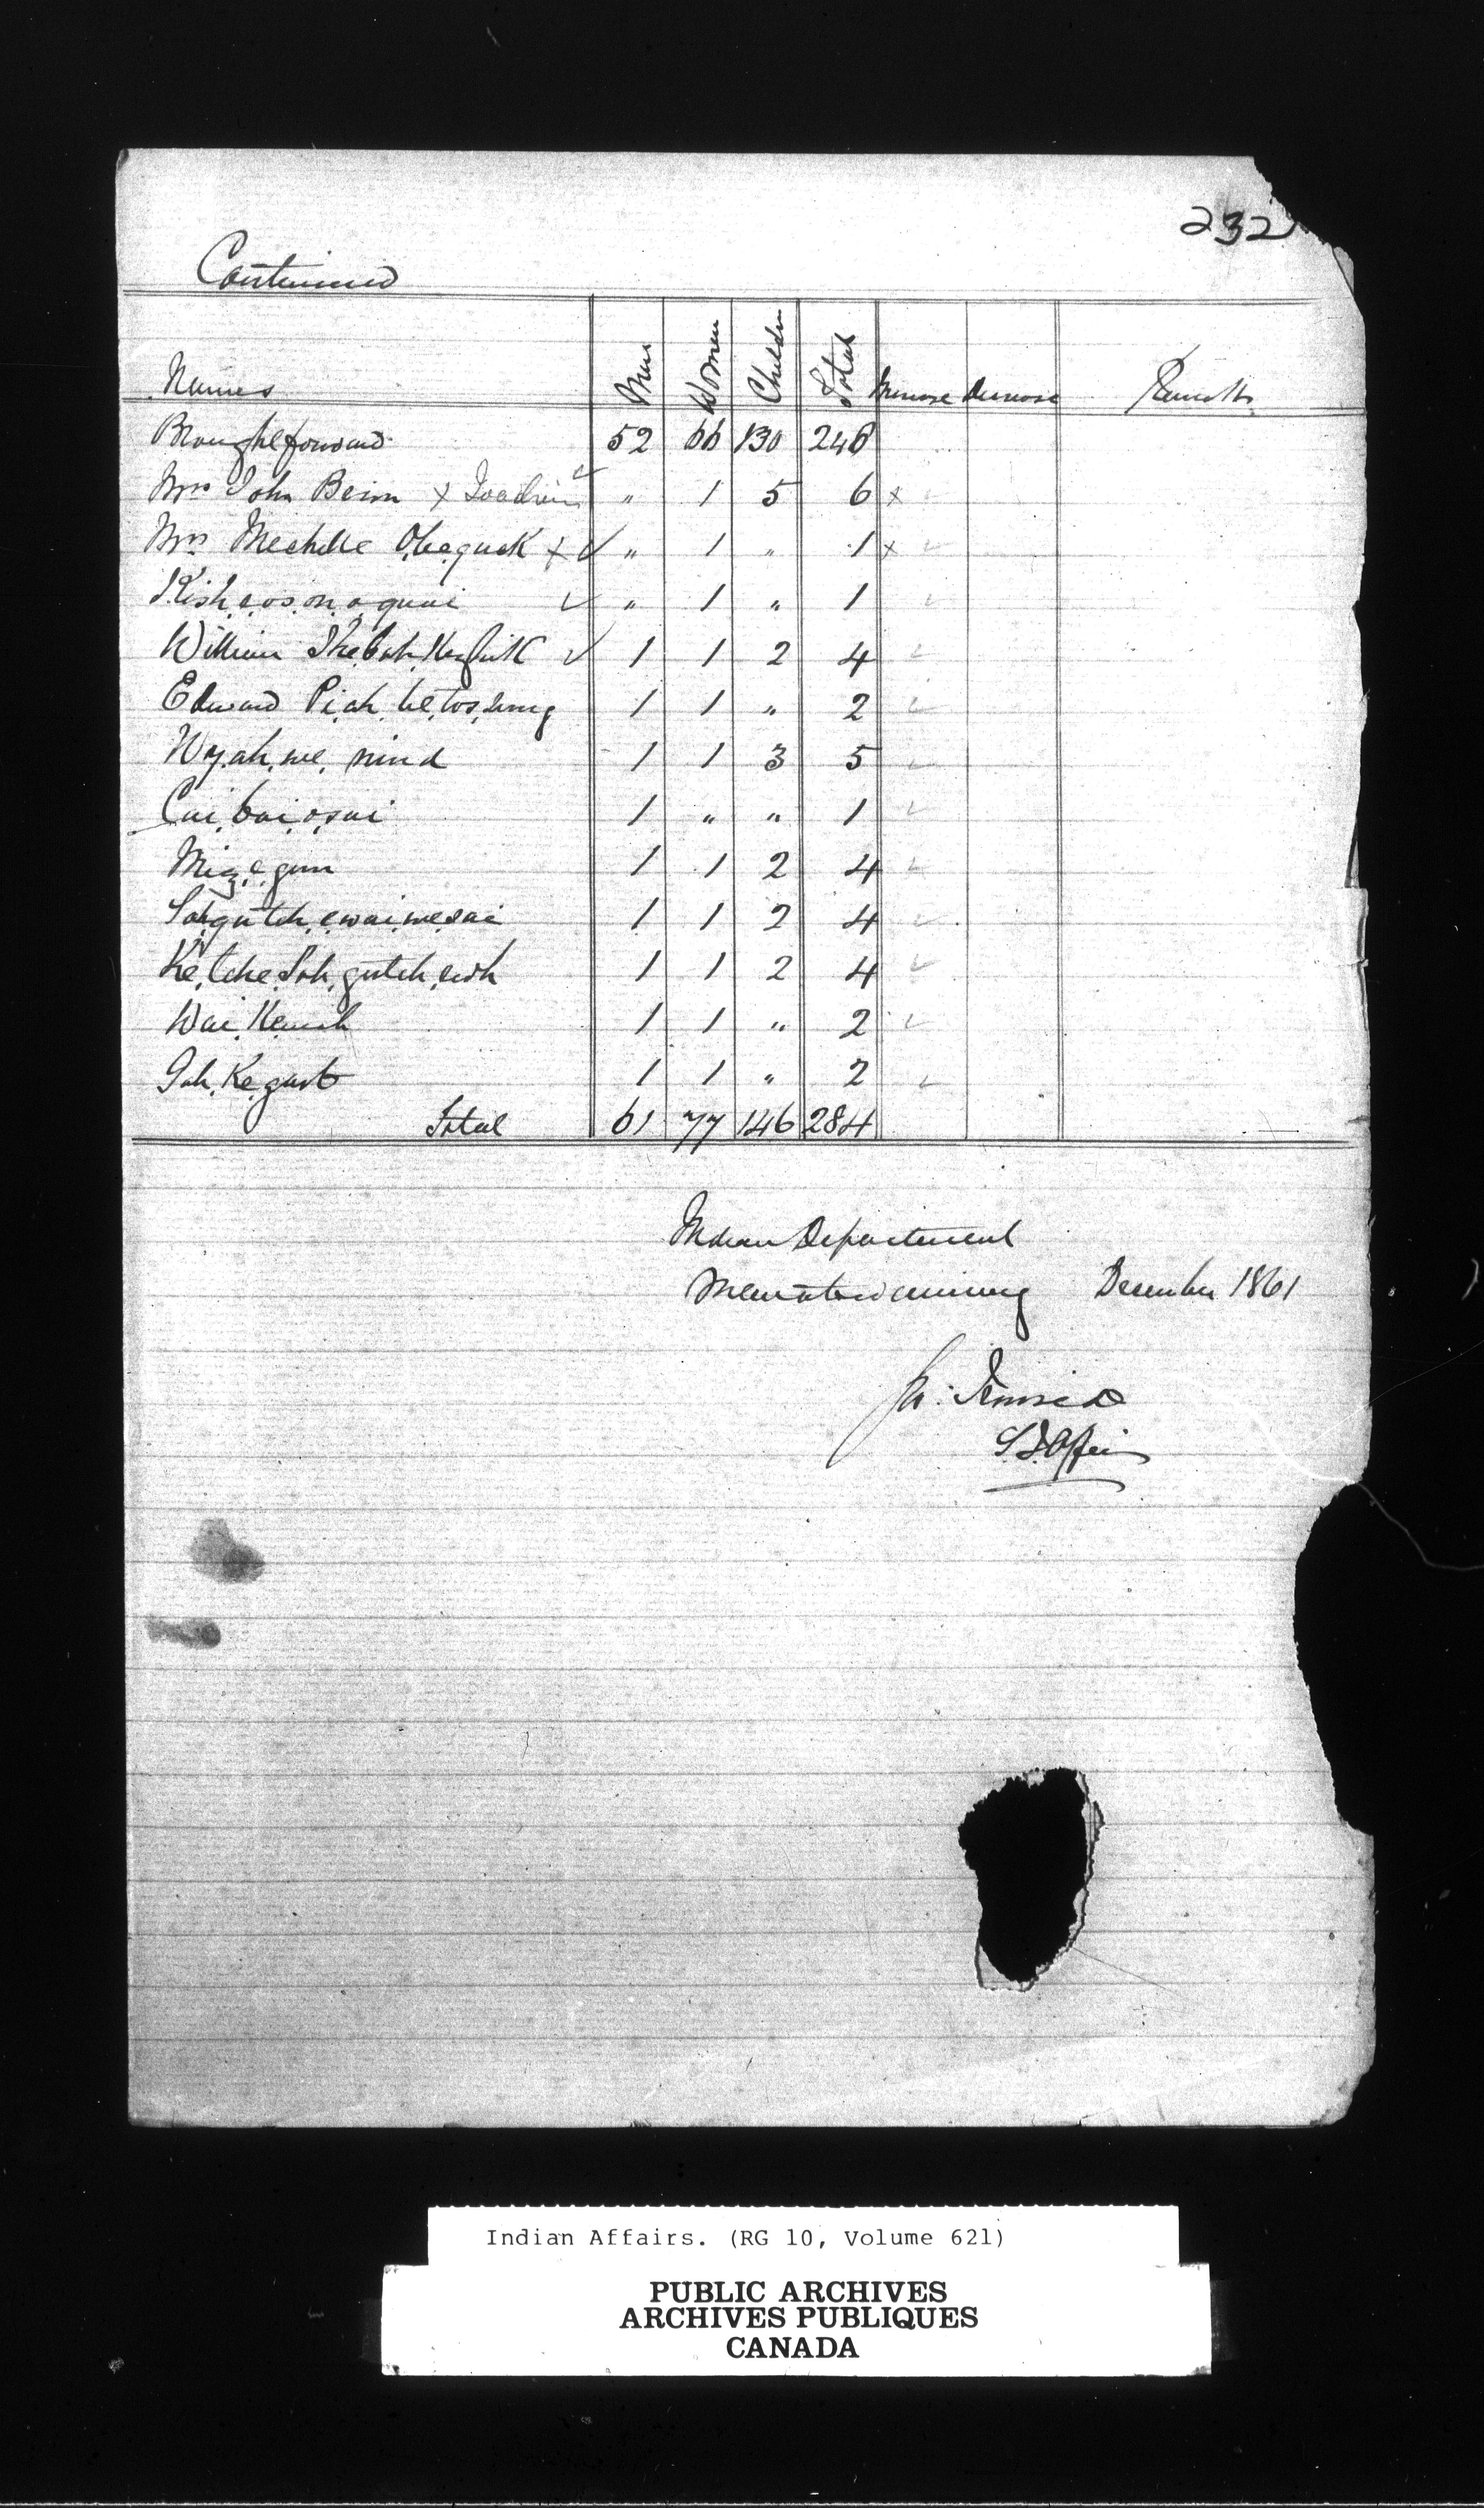 232
Continued
Names Men Women Children Total Increase Decrease Remarks
Brought forward 52 66 130 248
Mrs John Beion x ✓ " 1 5 6 x
Mrs Mechelle O,be,quck x ✓ " 1 " 1 x ✓
Kish,e,os,on,o,quai ✓ " 1 " 1 ✓
William ✓ 1 1 2 4 ✓
Edward Pi,ah,be,tos,sung 1 1 " 2 ✓
Wy,ah,we,nind 1 1 3 5 ✓
Cai,bai,o,sai 1 " " 1 ✓
Miz,e,gun 1 1 2 4 ✓
Sah,gutch,e,wai,we,sai 1 1 2 4 ✓
Ke,tche,Sah,gutch,ewh 1 1 2 4 ✓
Wai,Kemah 1 1 " 2 ✓
Gah,Ke,gast 1 1 " 2 ✓
Total 61 77 146 284
Indian Department
Manitowaning December 1861
Indian Affairs. (RG 10, Volume 621)
PUBLIC ARCHIVES
ARCHIVES PUBLIQUES
CANADA